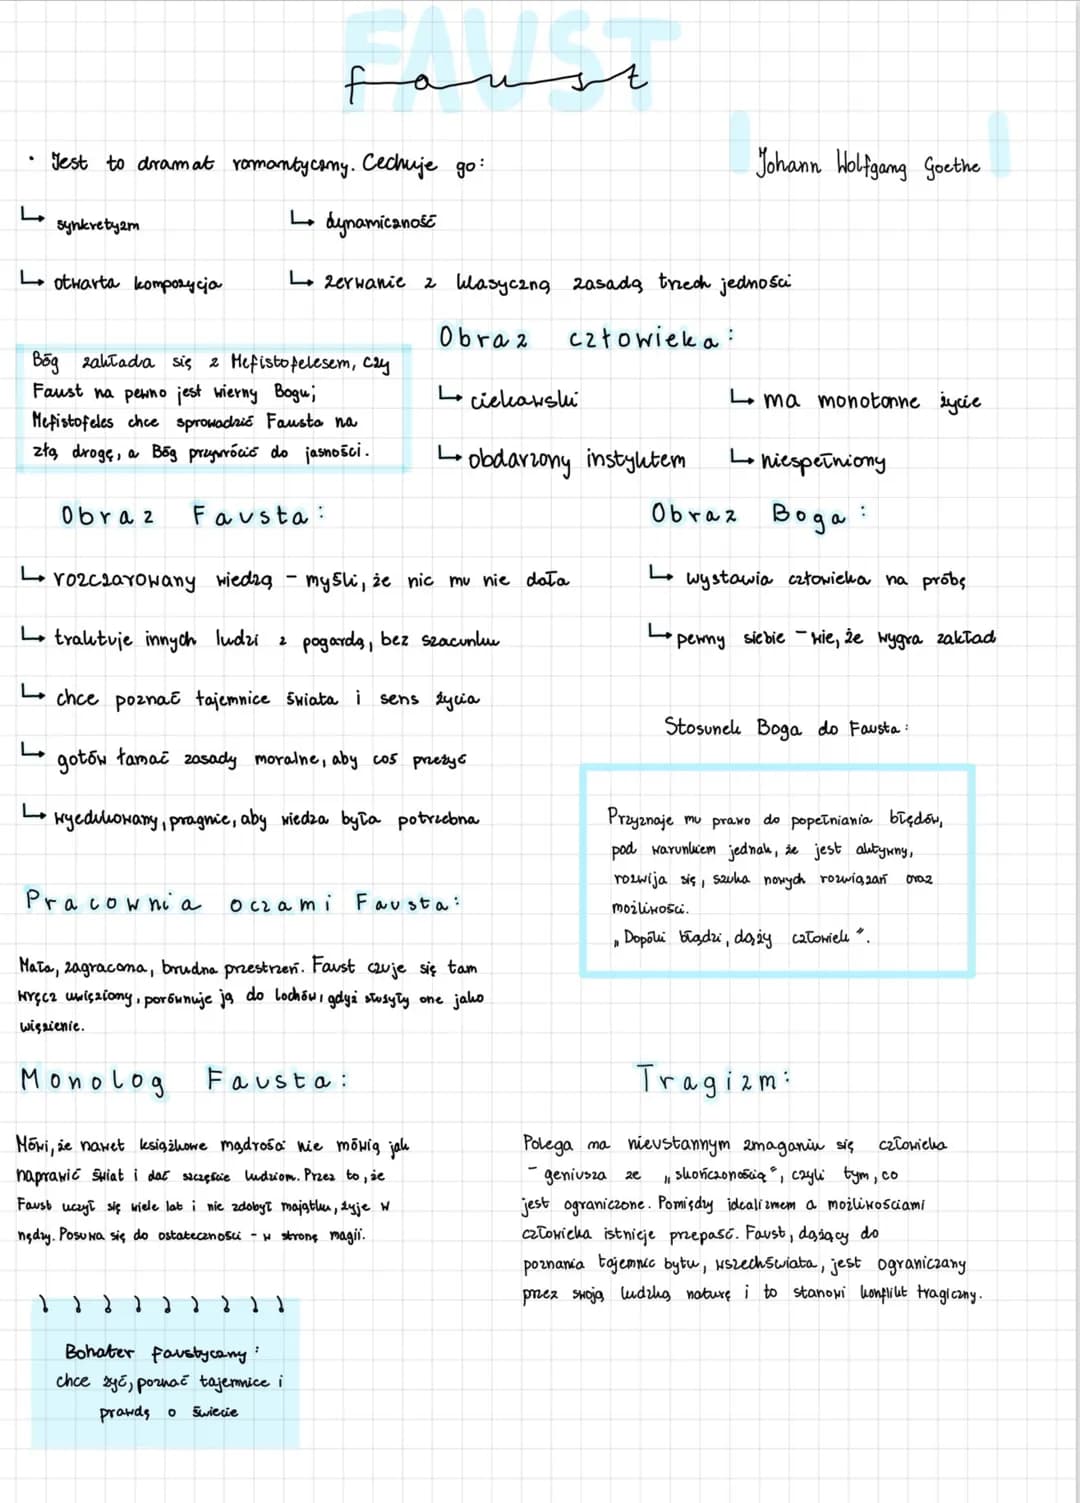 FAUST
faust
• Jest to dramat romantyczny. Cechuje go:
Johann Wolfgang Goethe
↳ synkretyzm
↳ dynamiczność
↳ otwarta kompozycja
↳ zerwanie z klasyczną zasadą trzech jedności
Bóg zakłada się z Mefistofelesem, czy
Faust na pewno jest wierny Bogu;
Mefistofeles chce sprowadzić Fausta na
złą drogę, a Bóg przywrócić do jasności.
Obraz człowieka:
↳ ciekawski
↳ ma monotonne życie
↳ obdarzony instyktem
↳ niespełniony
Obraz Fausta:
↳ rozczarowany wiedzą - myśli, że nic mu nie dała
↳ traktuje innych ludzi z pogardą, bez szacunku
↳ chce poznać tajemnice świata i sens życia
↳ gotów łamać zasady moralne, aby coś przeżyć
↳ wyedukowany, pragnie, aby wiedza była potrzebna
Obraz Boga:
↳ wystawia człowieka na próbę
↳ pewny siebie - wie, że wygra zakład
Stosunek Boga do Fausta:
Przyznaje mu prawo do popełniania błędów,
pod warunkiem jednak, że jest aktywny,
rozwija się, szuka nowych rozwiązań oraz
możliwości.
„Dopóki błądzi, dąży człowiek”.
Pracownia oczami Fausta:
Mała, zagracona, brudna przestrzeń. Faust czuje się tam
wręcz uwięziony, porównuje ją do lochów, gdyż służyły one jako
więzienie.
Monolog Fausta:
Mówi, że nawet książkowe mądrości nie mówią jak
naprawić świat i dać szczęście ludziom. Przez to, że
Faust uczył się wiele lat i nie zdobył majątku, żyje w
nędzy. Posuwa się do ostateczności - w stronę magii.
Tragizm:
Polega na nieustannym zmaganiu się człowieka
- geniusza ze „skończonością”, czyli tym, co
jest ograniczone. Pomiędzy idealizmem a możliwościami
człowieka istnieje przepaść. Faust, dążący do
poznania tajemnic bytu, wszechświata, jest ograniczany
przez swoją ludzką naturę i to stanowi konflikt tragiczny.
Bohater faustyczny:
chce żyć, poznać tajemnice i
prawdę o świecie